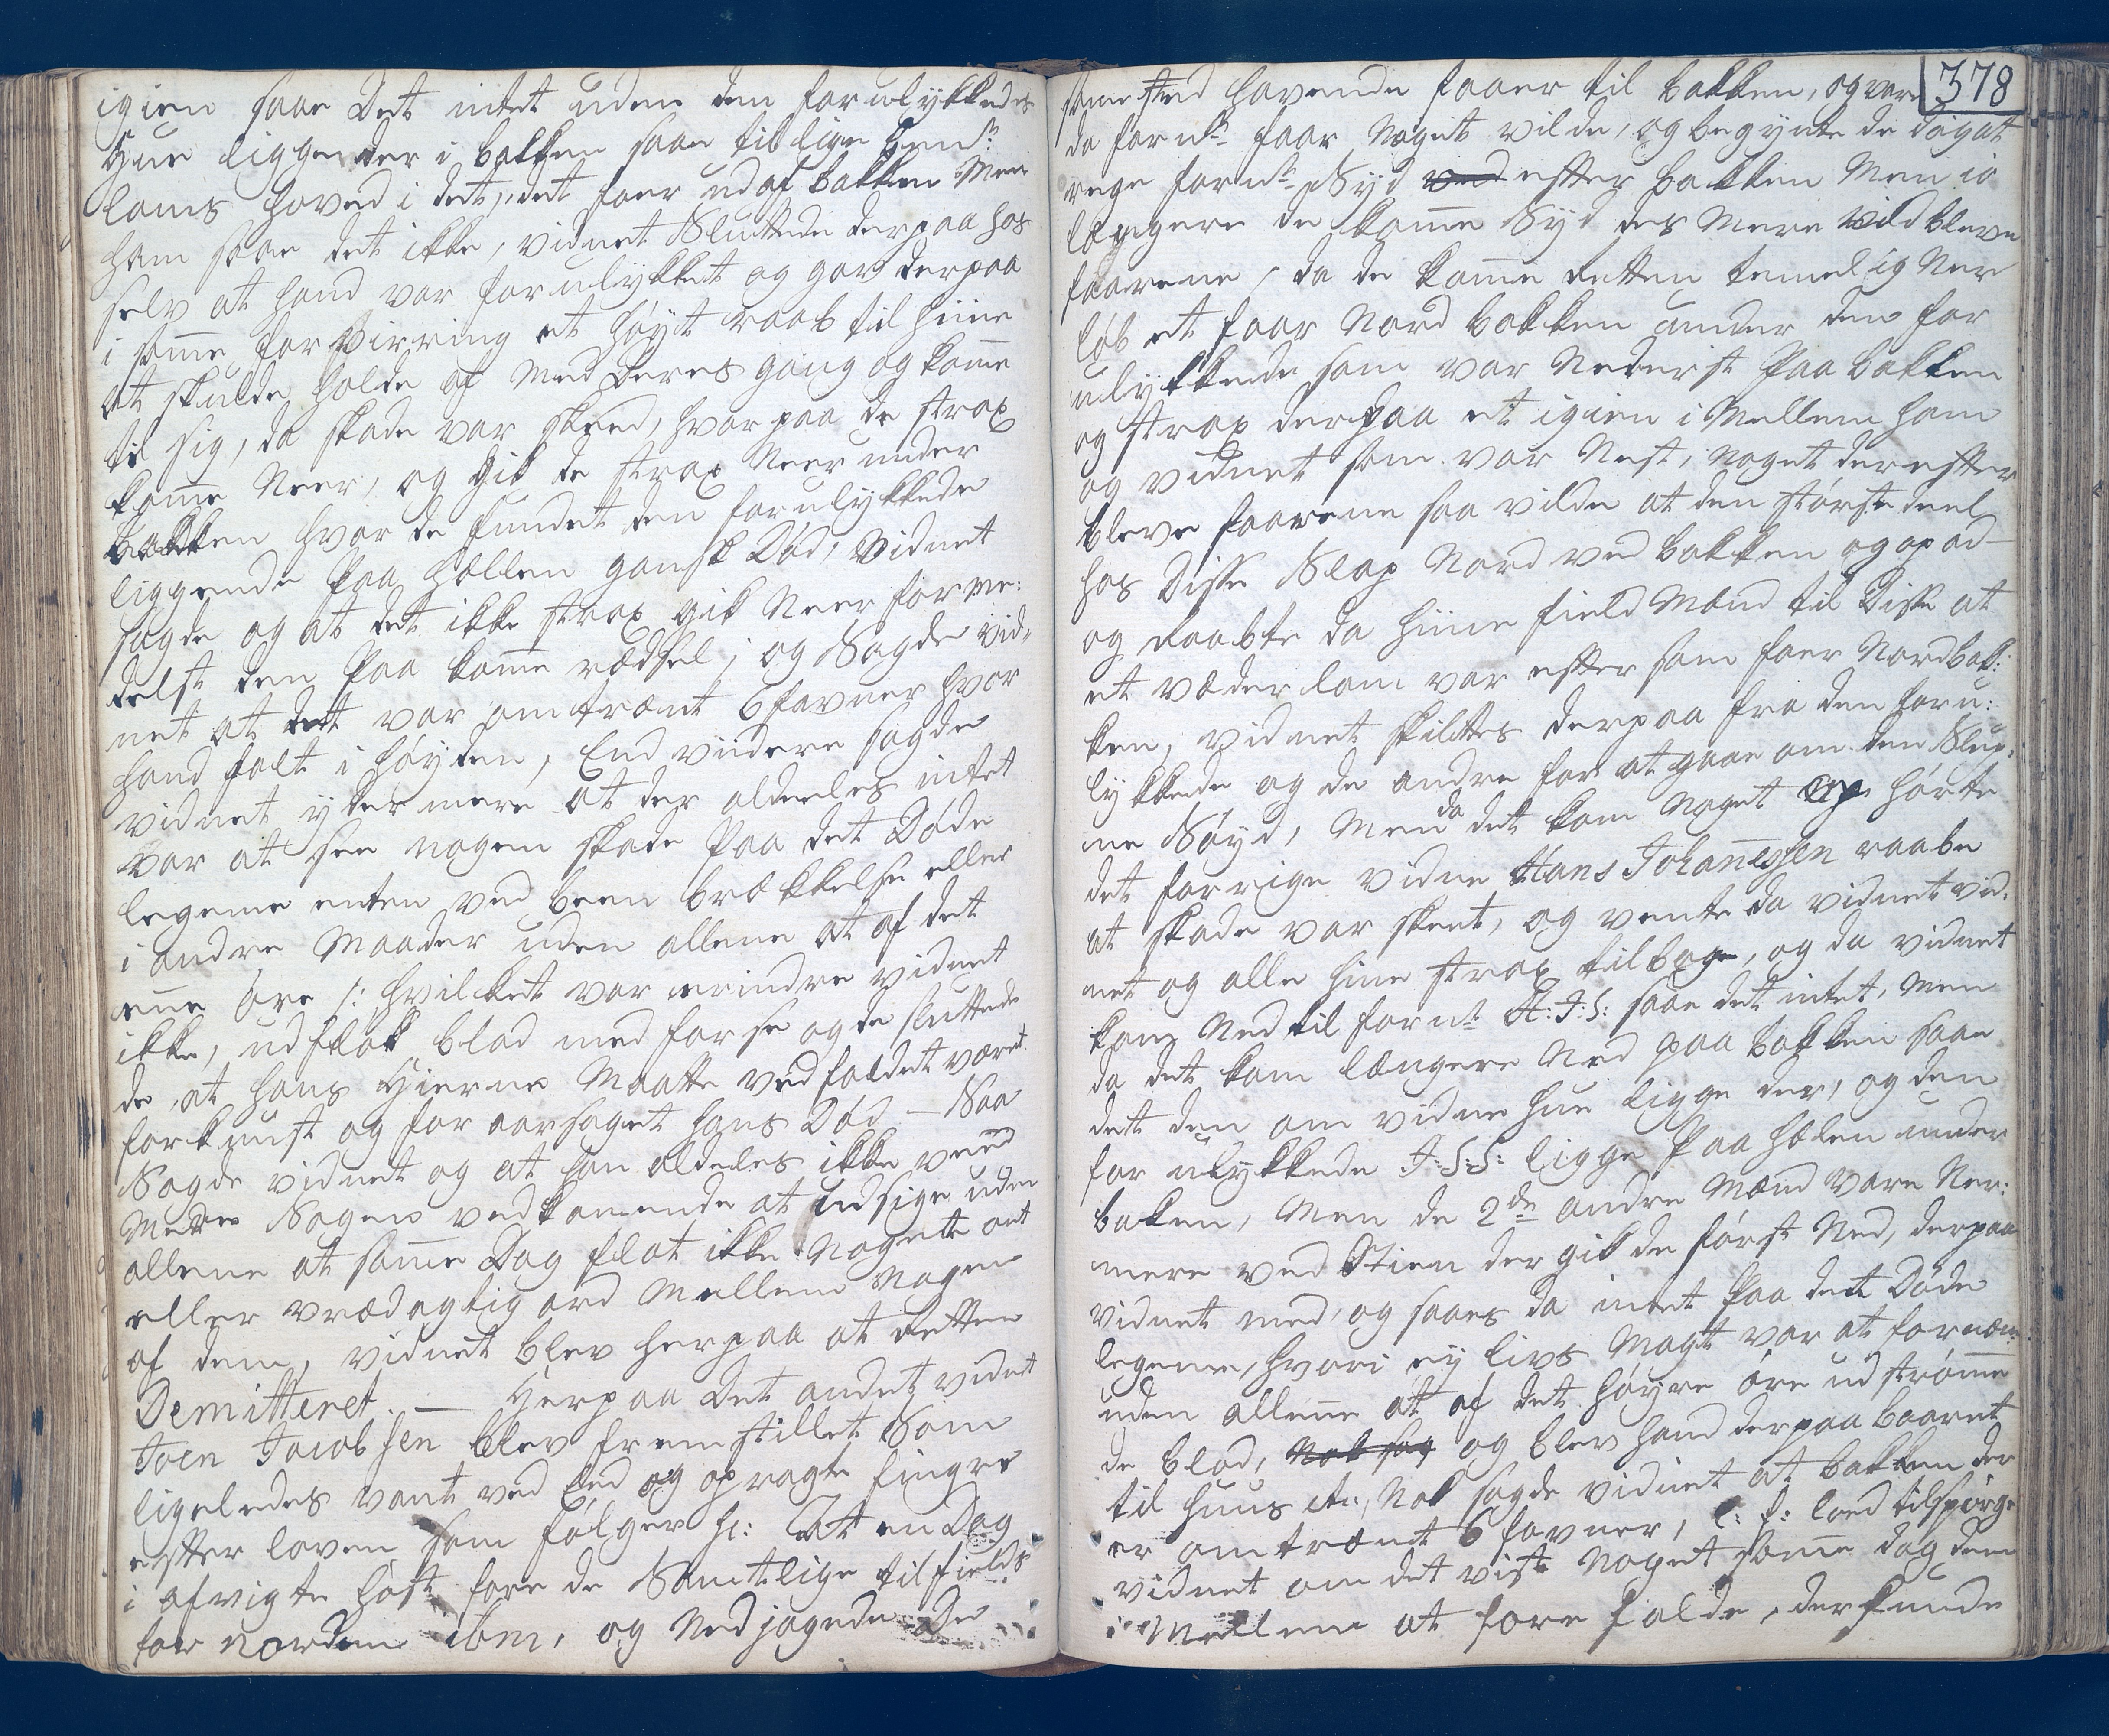 igien saae Det intet uden den forulykkedes
Hue liggende der i bakken saae tillige benda
lams hoved i det, det foer ud af bakken Men
ham saae det ikke, vidnet Sluttede derpaa hos
selv at hand var forulykket og gav derpaa
i samme forvirring et høyt raab til hiine
at skulde holde af med Deres gang og komme
til sig, da skade var skeed, hvorpaa de strax
komme Neer, og gik de strax Neer under
bakken hvor de fundet den forulykkede
liggende paa Hællen gansk Død, Vidnet
sagde og at det ikke strax gik Neer forme:
delst den paa komme rædsel; og Sagde vid,
net at det var omtrænt 6 favner hvor
hand falt i høyden, End viidere sagde
vidnet ydermere at der aldeeles intet
var at see nogen skade paa det Døde
legeme enten ved been brækkelse eller
i andre Maader uden allene at af det
ene øre /: hvilket var erindre vidnet
ikke, udfløk blod med forse og de sluttede
de, at hans Hierne Maatte ved faldet været
forknust og foraarsaget hans Død — Saa
Sagde vidnet og at han aldeles ikke veed
Mere Sagen vedkomende at udsige uden
allene at samme Dag flat ikke Nogett ont
eller vrædagtig ord Mellem Nogen
af dem, vidnet blev herpaa at Retten
Demitteret. — Herpaa Det andet vidnet
Joen Jacobsen blev fremstillet Som
ligeledes vant ved Eed og opragte fingre
efter loven som følger sc: At en Dag
i afvigte høst fore de Samtlige til fields
for norden ibm, og Nedjagede De
378
somested havende faaer til bakken, og vare
da fornte faar Noget vilde, og begynte de dog at
rege fornte Syd efter bakken Men io
længere de komme Syd des Mere vild bleve
faarene, da de komme Retten temelig Ner
løb et faar Nord bakken under den for
ulykkede som var Nederst paa bakken
og strax derpaa et igien i Mellem ham
og vidnet som var Nest, noget derefter
bleve faarene saa vilde at den største deel
hos Disse Slap Nord ved bakken og op ad
og raabte da hiine field Mænd til Disse at
et væderlam var efter som foer Nord bak:
ken, vidnet skiltes derpaa fra den foru:
lykkede og de andre for at gaae om den Slup,
ne Søyd, Men da det kom Noget op hørte
det forrige vidne Hans Johannessen raabe
at skade var skeet, og vente da vidnet vid:
net og alle hine strax tilbage, og da vidnet
kom Ned til fornte H: J: S: saae det intet, Men
da det kom længere Ned paa bakken saae
dett den omvidne hue ligge der, og den
forulykkede J: S: S: ligge paa Hælen under
baken, Men de 2de andre Mænd vare Ner:
mere ved Stien der gik de først Ned, derpaa
vidnet med, og saaes da intet paa det Døde
legeme, hvori ey livs Magt var at fornem:
uden allene at af det høyre øre udstrømme
de blod, Nok sag og blev hand derpaa baaret
til huus etc, Nok sagde vidnet at bakken der
er omtrendt 6 favner, C: f: loed tilspørge
vidnet om det viste Noget somme dag dem
i Mellem at fore falde, der kunde